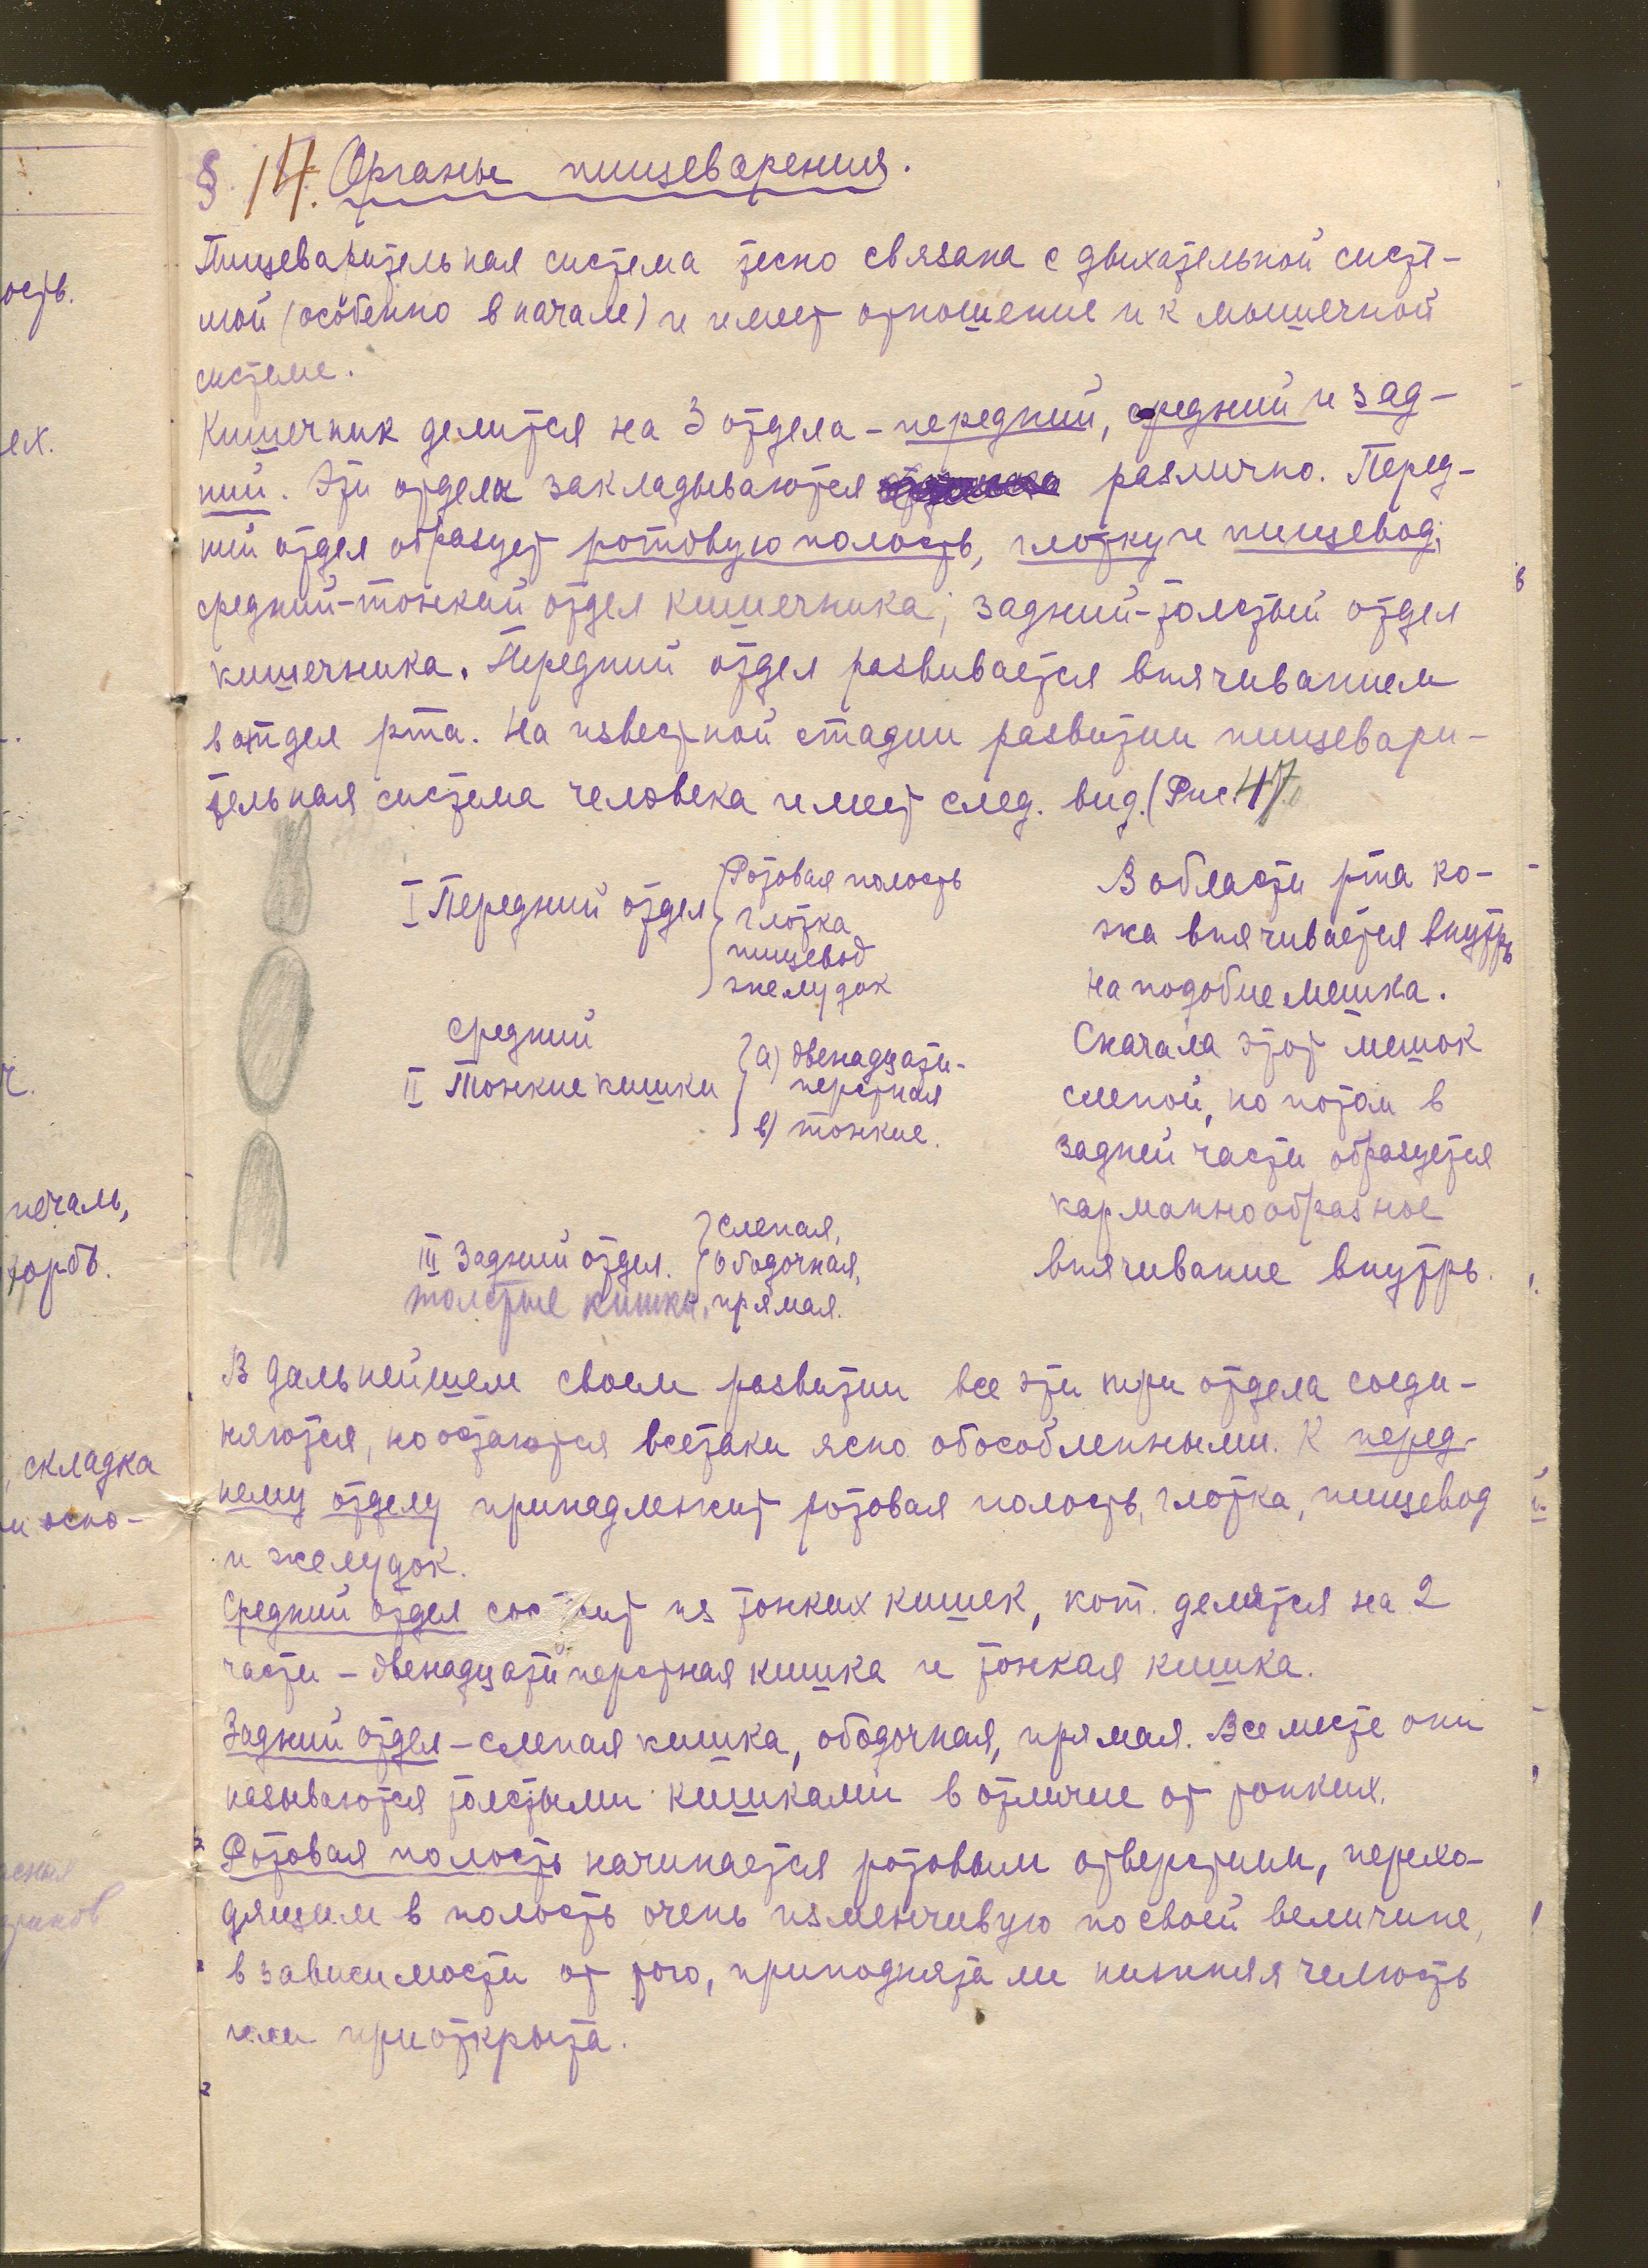 § 14. Органы пищеварения.
Пищеварительная система тесно связана с дыхательной систе-
мой (особенно в начале) и имеет отношение и к мышечной
системе.
Кишечник делится на 3 отдела - передний, средний и зад-
ний. Эти отделы закладываются различно. Перед-
ний отдел образует ротовую полость, глотку и пищевод;
средний-тонкий отдел кишечника; задний-толстый отдел
кишечника. Передний отдел развивается впячиванием
в отдел рта. На известной стадии развития пищевари-
тельная система человека имеет след. вид. (Рис. 47.
I Передний отдел
Ротовая полость
глотка
пищевод
желудок
средний
II Тонкие кишки
а) двенадцати-
перстная
в) тонкие.
III Задний отдел.
толстые кишки.
слепая,
ободочная,
прямая.
В области рта ко-
жа впячивается внутрь
на подобие мешка.
Сначала этот мешок
слепой, но потом в
задней части образуется
карманнообразное
впячивание внутрь.
В дальнейшем своем развитии все эти три отдела соеди-
няются, но остаются всетаки ясно обособленными. К перед-
нему отделу принадлежит ротовая полость, глотка, пищевод
и желудок.
Средний отдел состоит из тонких кишек, кот. делятся на 2
части - двенадцатиперстная кишка и тонкая кишка.
Задний отдел - слепая кишка, ободочная, прямая. Все месте они
называются толстыми кишками в отличие от тонких.
Ротовая полость начинается ротовым отверстием, перехо-
дящим в полость очень изменчивую по своей величине,
в зависимости от того, приподнята ли нижняя челюсть
или приоткрыта.
ость.
ех.
ч.
печаль,
горбъ.
, складка
и осно-